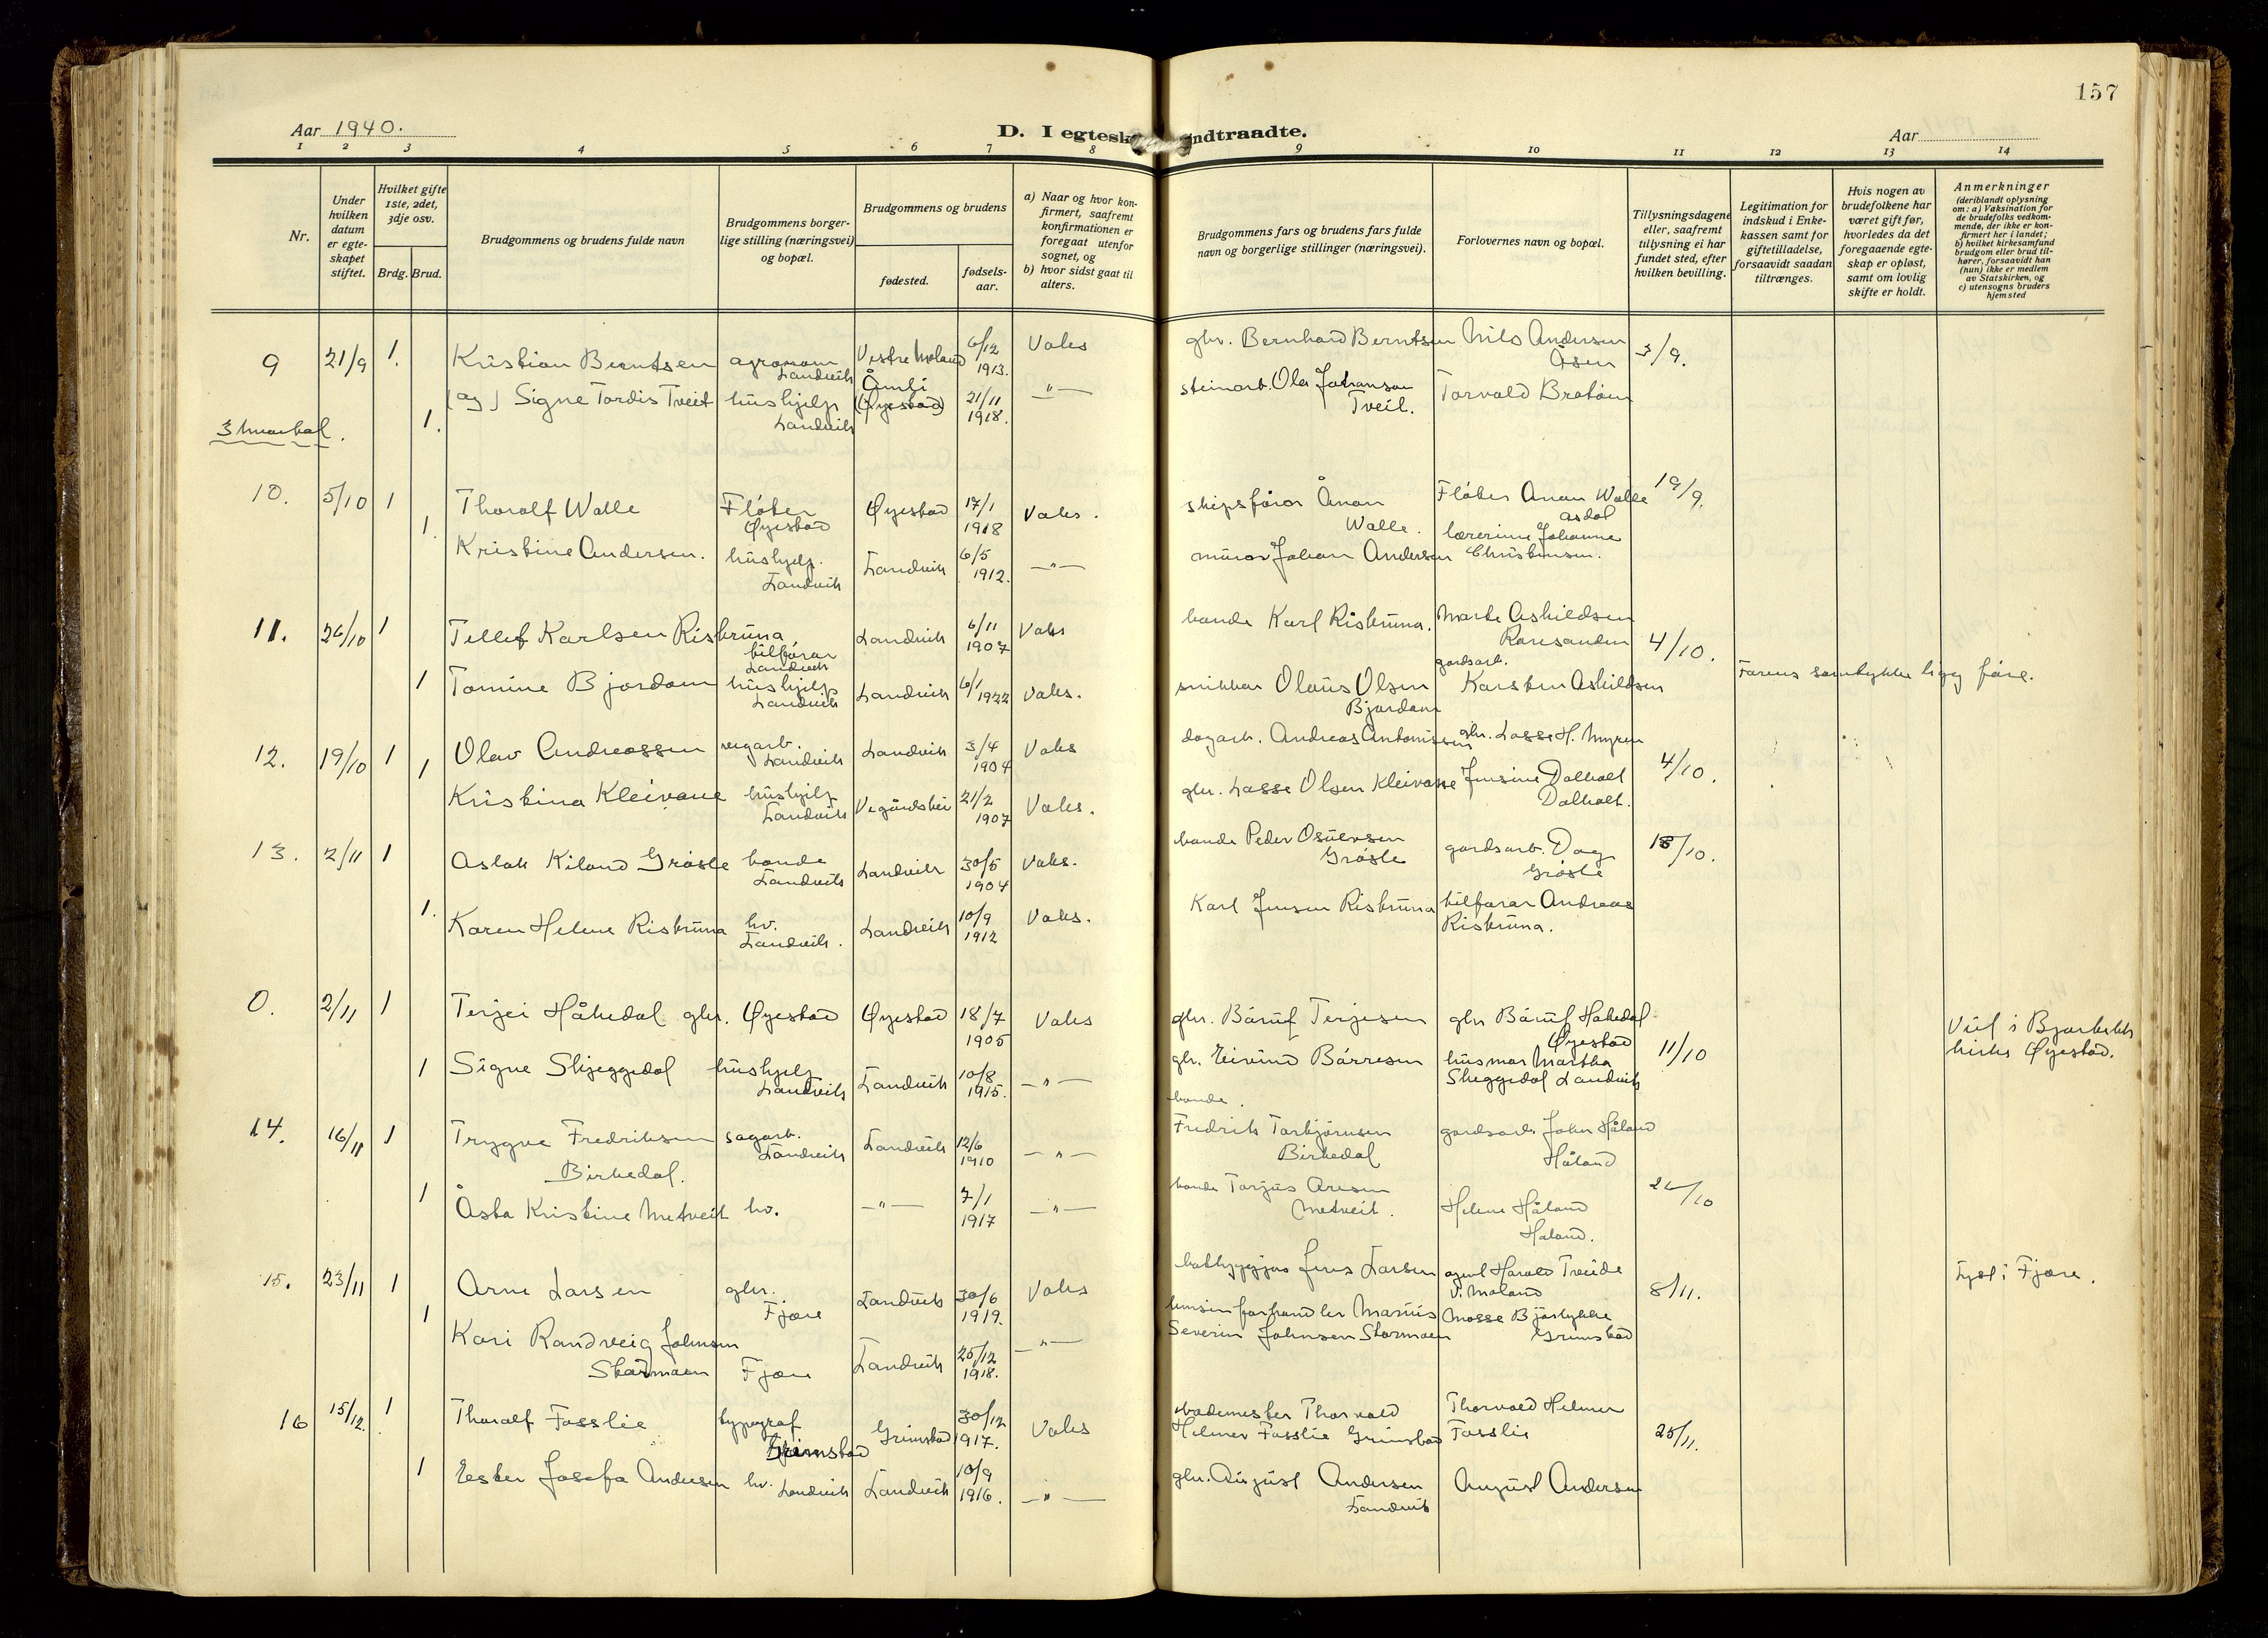 157
Aar 1940.
D. I egtesk
ndtraadte.
Aar
1 2 3 4 5 6 7 8 9 10 11 12 13 14
Nr.
Under
hvilken
datum
er egte-
skapet
stiftet.
Hvilket gifte
1ste, 2det,
3dje osv.
Brdg. Brud.
Brudgommens og brudens fulde navn
Brudgommens borger-
lige stilling (næringsvei)
og bopæl.
Brudgommens og brudens
fødested.
fødsels-
aar.
a) Naar og hvor kon-
firmert, saafremt
konfirmationen er
foregaat utenfor
sognet, og
b) hvor sidst gaat til
alters.
Brudgommens fars og brudens fars fulde
navn og borgerlige stillinger (næringsvei).
Forlovernes navn og bopæl.
Tillysningsdagene
eller, saafremt
tillysning ei har
fundet sted, efter
hvilken bevilling.
Legitimation for
indskud i Enke-
kassen samt for
giftetilladelse,
forsaavidt saadan
tiltrænges.
Hvis nogen av
brudefolkene har
været gift før,
hvorledes da det
foregaaende egte-
skap er opløst,
samt om lovlig
skifte er holdt.
Anmerkninger
(deriblandt oplysning
om: a) Vaksination for
de brudefolks vedkom-
mende, der ikke er kon-
firmert her i landet;
b) hvilket kirkesamfund
brudgom eller brud til-
hører, forsaavidt han
(hun) ikke er medlem
av Statskirken, og
c) utensogns bruders
hjemsted
9 21/9 1. Kristian Berntsen agronom Landvik Vestre Moland 6/12 1913. Vaks gbr. Bernhard Berntsen Nils Andersen Åsen 3/9.
1. (og) Signe Tordis Tveit hushjelp Landvik Åmli (Øyestad) 21/11 1918. —"— steinarb. Ola Johanson Tveit. Torvald Bratein
10. 5/10 1 Thoralf Walle Fløter Øyestad Øyestad 17/1 1918 Vaks. skipsfører Ånon Walle. Fløter Anon Walle Asdal 19/9.
1. Kristine Andersen. hushjelp. Landvik Landvik 6/5 1912. —"— murar Johan Andersen lærerinne Johanne Christensen.
11. 26/10 1 Tellef Karlsen Risbruna, bilførar Landvik Landvik 6/11 1907 Vaks bonde Karl Risbruna. Marte Askildsen Roresanden 4/10.
1 Tomine Bjordam hushjelp Landvik Landvik 6/1 1922 Vaks. snikkar Olaus Olsen Bjordam gardsarb. Karsten Askildsen Farens samtykke ligg føre.
12. 19/10 1 Olav Andreassen vegarb. Landvik Landvik 3/4 1904 Vaks dagarb. Andreas Antonissen gbr. Lasse H. Myren 4/10.
1 Kristina Kleivane hushjelp Landvik Vegårdshei 21/2 1907 Vaks. gbr. Lasse Olsen Kleivane Jensine Dalholt Dalholt.
13. 2/11 1 Aslak Kiland Grøsle bonde Landvik Landvik 30/5 1904 Vaks. bonde Peder Osulvsen Grøsle gardsarb. Dag Grøsle 18/10.
1. Karen Helene Risbruna hv. Landvik. Landvik 10/9 1912 Vaks. Karl Jensen Risbruna bilførar Andreas Risbruna.
0. 2/11 1 Terjei Håkedal gbr. Øyestad Øyestad 18/7 1905 Vaks gbr. Bårut Terjesen gbr Bårut Håkedal Øyestad 11/10
1 Signe Skjeggedal hushjelp Landvik Landvik 10/8 1915. —"— gbr. Eivind Bårresen husmor Martha Skeggedal Landvik
14. 16/11 1 Trygve Fredriksen Birkedal. sagarb. Landvik Landvik 12/6 1910 —"— bonde. Fredrik Torbjørnsen Birkedal gardsarb. John Håland Håland
1 Åsta Kristine Metveit hv. —"— 7/1 1917 —"— bonde Tarjus Aresen Metveit. Helene Håland Håland.
15. 23/11 1 Arne Larsen gbr. Fjære Landvik 30/6 1919. Vaks båtbyggjar Jens Larsen agent Harald Treide V. Moland 8/11. Lyst i Fjære.
1 Kari Randveig Johnsen Stormoen Fjære Landvik 25/12 1918. —"— Marius Severin Johnsen Stormoen Grimstad
16 15/12. 1 Thoralf Fosslie typograf Grimstad Grimstad 30/12 1917. Vaks bademester Thorvald Helmer Fosslie Grimstad Thorvald Helmer Fosslie 25/11.
1 Ester Josefa Andersen hv. Landvik Landvik 10/9 1916. —"— gbr. August Andersen Landvik August Andersen